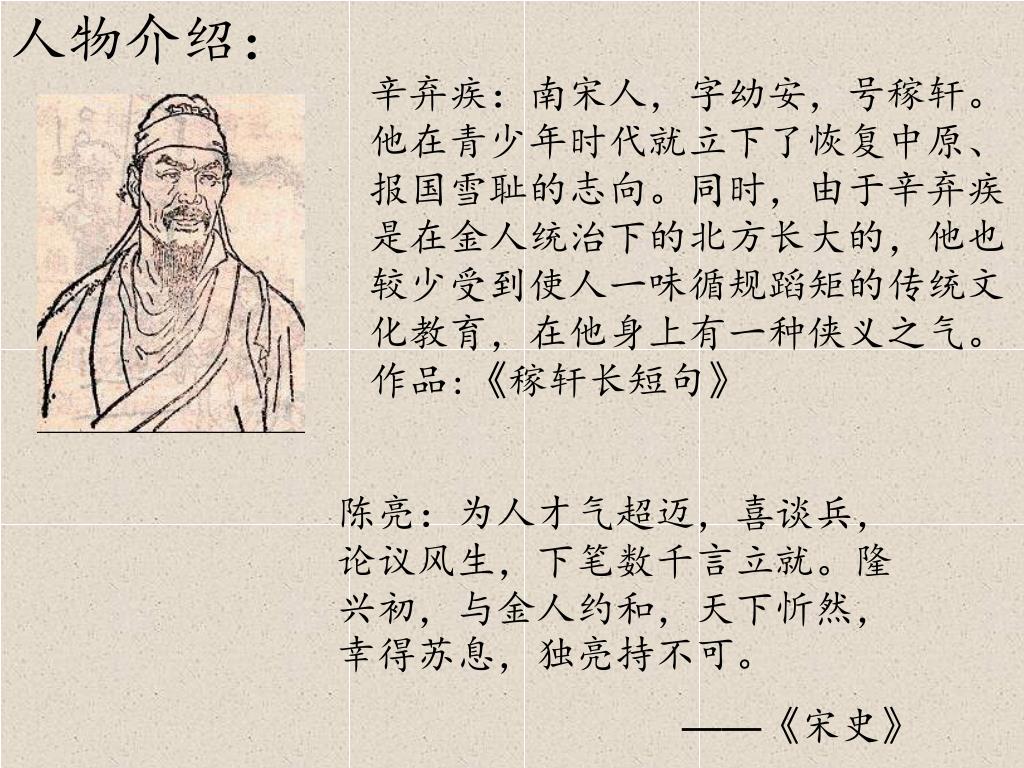 人物介绍：
辛弃疾：南宋人，字幼安，号稼轩。
他在青少年时代就立下了恢复中原、
报国雪耻的志向。同时，由于辛弃疾
是在金人统治下的北方长大的，他也
较少受到使人一味循规蹈矩的传统文
化教育，在他身上有一种侠义之气。
作品：《稼轩长短句》
陈亮：为人才气超迈，喜谈兵，
论议风生，下笔数千言立就。隆
兴初，与金人约和，天下忻然，
幸得苏息，独亮持不可。
——《宋史》